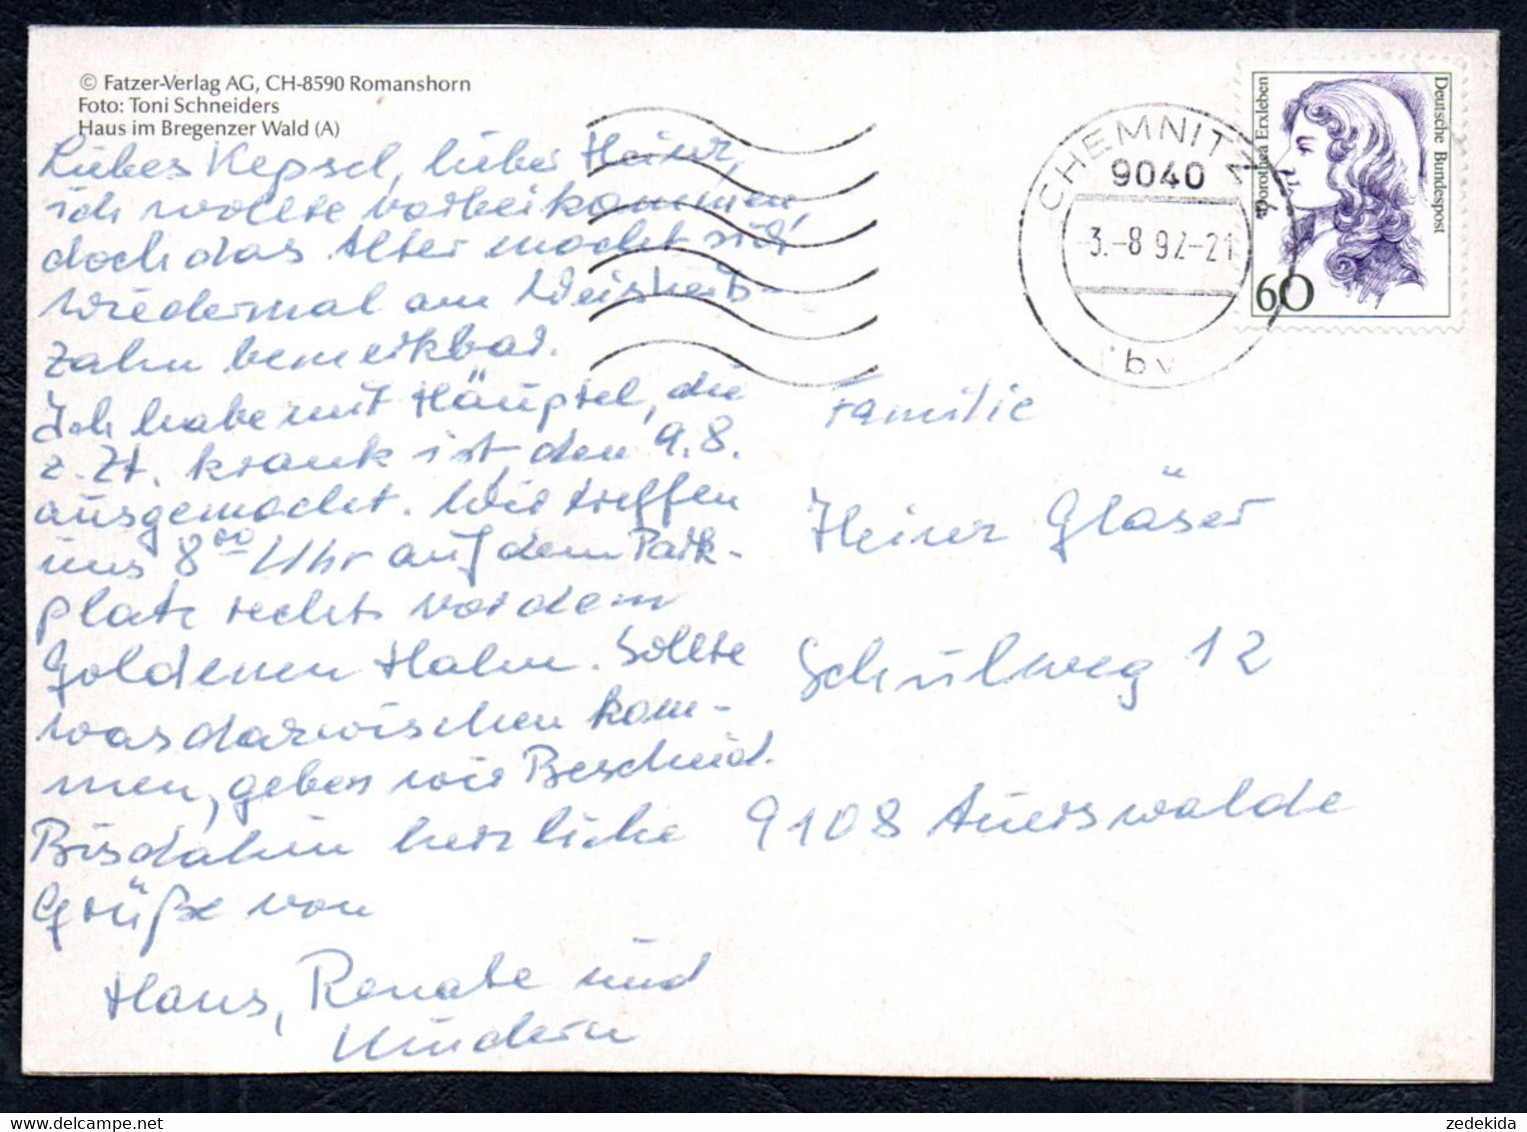 © Fatzer-Verlag AG, CH-8590 Romanshorn
Foto: Toni Schneiders
Haus im Bregenzer Wald (A)
Liebes Kepsel, lieber Heiner,
ich wollte vorbeikommen,
doch das Alter macht sich
wiedermal am Weisheits-
zahn bemerkbar.
Ich habe mit Häuptel, die
z. Zt. krank ist den 9.8.
ausgemacht. Wir treffen
uns 8⁰⁰ Uhr auf dem Park-
platz rechts vor dem
Goldenen Hahn. Sollte
was dazwischen kom-
men, geben wir Bescheid.
Bis dahin herzliche
Grüße von
Hans, Renate und
Kindern
CHEMNITZ
9040
-3.-8 92-21
bv
Deutsche Bundespost
Dorothea Erxleben
60
Familie
Heiner Gläser
Schulweg 12
9108 Auerswalde
zedekida